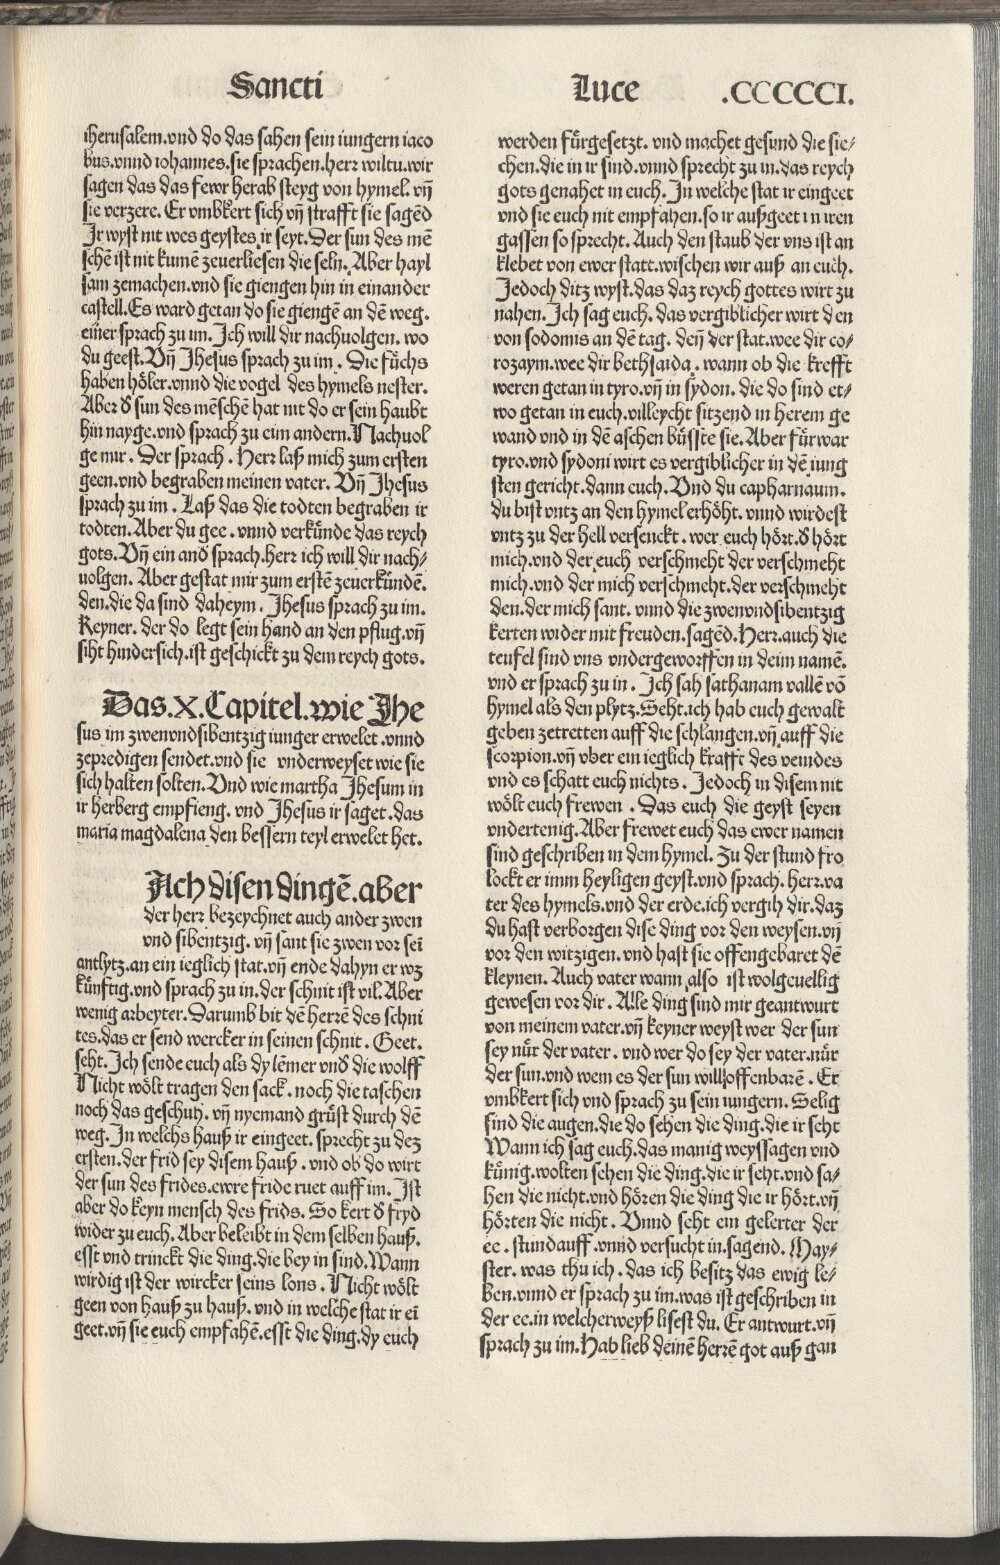 Sancti
Luce .CCCCCCI.
iherusalem.vnd do das sahen sein iungern iaco
bus.vnnd iohannes.sie sprachen.herr wiltu.wir
sagen das das fewr herab steyg von hymel. vñ
sie verzere. Er vmbkert sich vñ strafft sie sagẽd
Ir wyst nit wes geystes ir seyt.Der sun des mẽ
schẽ ist nit kumẽ zeuerliesen die seln. Aber hayl
sam zemachen.vnd sie giengen hin in einander
castell.Es ward getan do sie giengẽ an dẽ weg.
einer sprach zu im. Ich will dir nachuolgen. wo
du geest.Vñ Ihesus sprach zu im . Die fuͤchs
haben hoͤler.vnnd die vogel des hymels nester.
Aber d̕ sun des mẽschẽ hat nit do er sein haubt
hin nayge.vnd sprach zu eim andern.Nachuol
ge mir . Der sprach . Herr laß mich zum ersten
geen.vnd begraben meinen vater. Vñ Ihesus
sprach zu im . Laß das die todten begraben ir
todten. Aber du gee . vnnd verkuͤnde das reych
gots.Vñ ein and̕ sprach.herr ich will dir nach/
uolgen. Aber gestat mir zum erstẽ zeuerkuͤndẽ.
den.die da sind daheym . Ihesus sprach zu im.
Keyner. der do legt sein hand an den pflug.vñ
siht hindersich.ist geschickt zu dem reych gots.
Das.X.Capitel.wie Ihe
sus im zwenvndsibentzig iunger erwelet .vnnd
zepredigen sendet.vnd sie vnderweyset wie sie
sich halten solten. Vnd wie martha Ihesum in
ir herberg empfieng. vnd Ihesus ir saget .das
maria magdalena den bessern teyl erwelet het.
Ach disen dingẽ.aber
der herr bezeychnet auch ander zwen
vnd sibentzig. vñ sant sie zwen vor seĩ
antlytz.an ein ieglich stat.vñ ende dahyn er wz
kuͤnftig.vnd sprach zu in.der schnit ist vil. Aber
wenig arbeyter.Darumb bit dẽ herrẽ des schni
tes.das er send wercker in seinen schnit . Geet.
seht. Ich sende euch als dy lẽmer vnd̕ die wolff
Nicht woͤlt tragen den sack . noch die taschen
noch das geschuh. vñ nyemand gruͤst durch dẽ
weg. In welchs hauß ir eingeet. sprecht zu dez
ersten.der frid sey disem hauß . vnd ob do wirt
der sun des frides.ewre fride ruet auff im. Ist
aber do keyn mensch des frids. So kert d̕ fryd
wider zu euch. Aber beleibt in dem selben hauß.
esst vnd trinckt die ding.die bey in sind.Wann
wirdig ist der wircker seins lons . Nicht woͤlt
geen von hauß zu hauß. vnd in welche stat ir eĩ
geet.vñ sie euch empfahẽ.esst die ding.dy euch
werden fuͤrgesetzt. vnd machet gesund die sie/
chen.die in ir sind.vnnd sprecht zu in.das reych
gots genahet in euch. In welche stat ir eingeet
vnd sie euch nit empfahen.so ir außgeet in iren
gassen so sprecht. Auch den staub der vns ist an
klebet von ewer statt.wischen wir auß an euch.
Jedoch ditz wyst.das daz reych gottes wirt zu
nahen. Ich sag euch. das vergiblicher wirt den
von sodomis an dẽ tag. deñ der stat.wee dir co/
rozaym.wee dir bethsaida . wann ob die krefft
weren getan in tyro.vñ in sydon. die do sind et/
wo getan in euch.villeycht sitzend in herem ge
wand vnd in dẽ aschen buͤssẽte sie. Aber fuͤrwar
tyro.vnd sydoni wirt es vergiblicher in dẽ iung
sten gericht.dann euch. Vnd du capharnaum.
du bist vntz an den hymel erhoͤht. vnnd wirdest
vntz zu der hell versenckt . wer euch hoͤrt.d̕ hoͤrt
mich.vnd der euch verschmeht der verschmeht
mich.vnd der mich verschmeht.der verschmeht
den.der mich sant. vnnd die zwenvndsibentzig
kerten wider mit freuden.sagẽd.Herr.auch die
teufel sind vns vndergeworffen in deim namẽ.
vnd er sprach zu in . Ich sah sathanam vallẽ võ
hymel als den plytz.Seht.ich hab euch gewalt
geben zetretten auff die schlangen.vñ auff die
scorpion.vñ vber ein ieglich krafft des veindes
vnd es schatt euch nichts . Jedoch in disem nit
woͤlt euch frewen . Das euch die geyst seyen
vndertenig. Aber frewet euch das ewer namen
sind geschriben in dem hymel. Zu der stund fro
lockt er imm heyligen geyst.vnd sprach. herr.va
ter des hymels.vnd der erde.ich vergih dir.daz
du hast verborgen dise ding vor den weysen.vñ
vor den witzigen. vnd hast sie offengebaret dẽ
kleynen. Auch vater wann also ist wolgeuellig
gewesen vor dir . Alle ding sind mir geantwurt
von meinem vater.vñ keyner weyst wer der sun
sey nuͤr der vater . vnd wer do sey der vater.nuͤr
der sun.vnd wem es der sun will offenbarẽ . Er
vmbkert sich vnd sprach zu sein iungern. Selig
sind die augen.die do sehen die ding.die ir seht
Wann ich sag euch.das manig weyssagen vnd
kuͤnig.wolten sehen die ding.die ir seht.vnd sa/
hen die nicht.vnd hoͤren die ding die ir hoͤrt.vñ
hoͤrten die nicht . Vnnd seht ein gelerter der
ee . stundauff .vnnd versucht in.sagend. May/
ster. was thu ich . das ich besitz das ewig le/
ben.vnnd er sprach zu im.was ist geschriben in
der ee.in welcherweyß lisest du. Er antwurt.vñ
sprach zu im.Hab lieb deinẽ herrẽ got auß gan